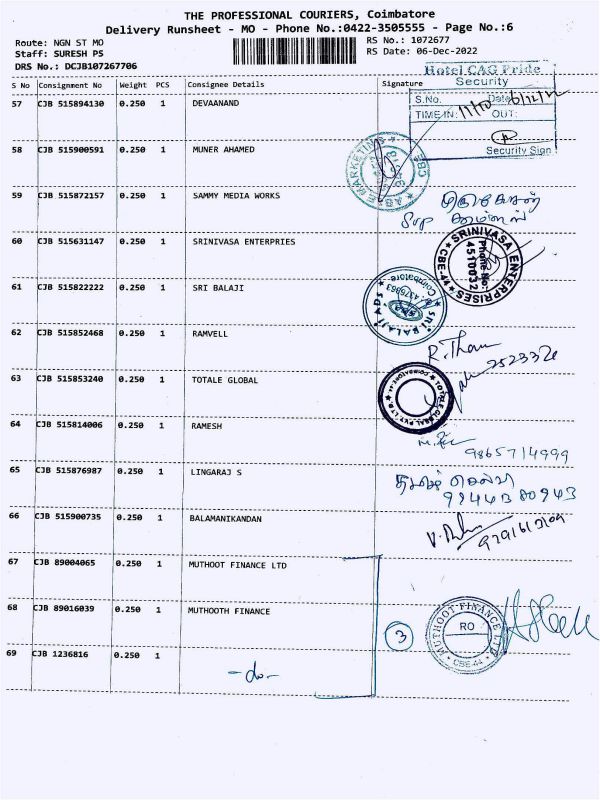 THE PROFESSIONAL COURIERS, Coimbatore
Delivery Runsheet - MO - Phone No.:0422-3505555 - Page No.:6
Route: NGN ST MO
Staff: SURESH PS
DRS No.: DCJB107267706
RS No.: 1072677
RS Date: 06-Dec-2022
S No Consignment No Weight PCS Consignee Details Signature
Hotel CAG Pride
Security
S.No. Date 6/12/22
TIME IN: 11/10 OUT:
Security Sign
57 CJB 515894130 0.250 1 DEVAANAND
58 CJB 515900591 0.250 1 MUNER AHAMED
59 CJB 515872157 0.250 1 SAMMY MEDIA WORKS
60 CJB 515631147 0.250 1 SRINIVASA ENTERPRIES
SRINIVASA ENTERPRISES
Phone No:
4510032
CBE-44
61 CJB 515822222 0.250 1 SRI BALAJI
SRI BALAJI
Coimbatore
62 CJB 515852468 0.250 1 RAMVELL
R. Tham
2523326
63 CJB 515853240 0.250 1 TOTALE GLOBAL
TOTALE GLOBAL PVT LTD
COIMBATORE-44
64 CJB 515814006 0.250 1 RAMESH
9865714999
65 CJB 515876987 0.250 1 LINGARAJ S
9944380943
66 CJB 515900735 0.250 1 BALAMANIKANDAN
67 CJB 89004065 0.250 1 MUTHOOT FINANCE LTD
68 CJB 89016039 0.250 1 MUTHOOTH FINANCE
3
MUTHOOT FINANCE LTD
RO
CBE-44
69 CJB 1236816 0.250 1
-do-